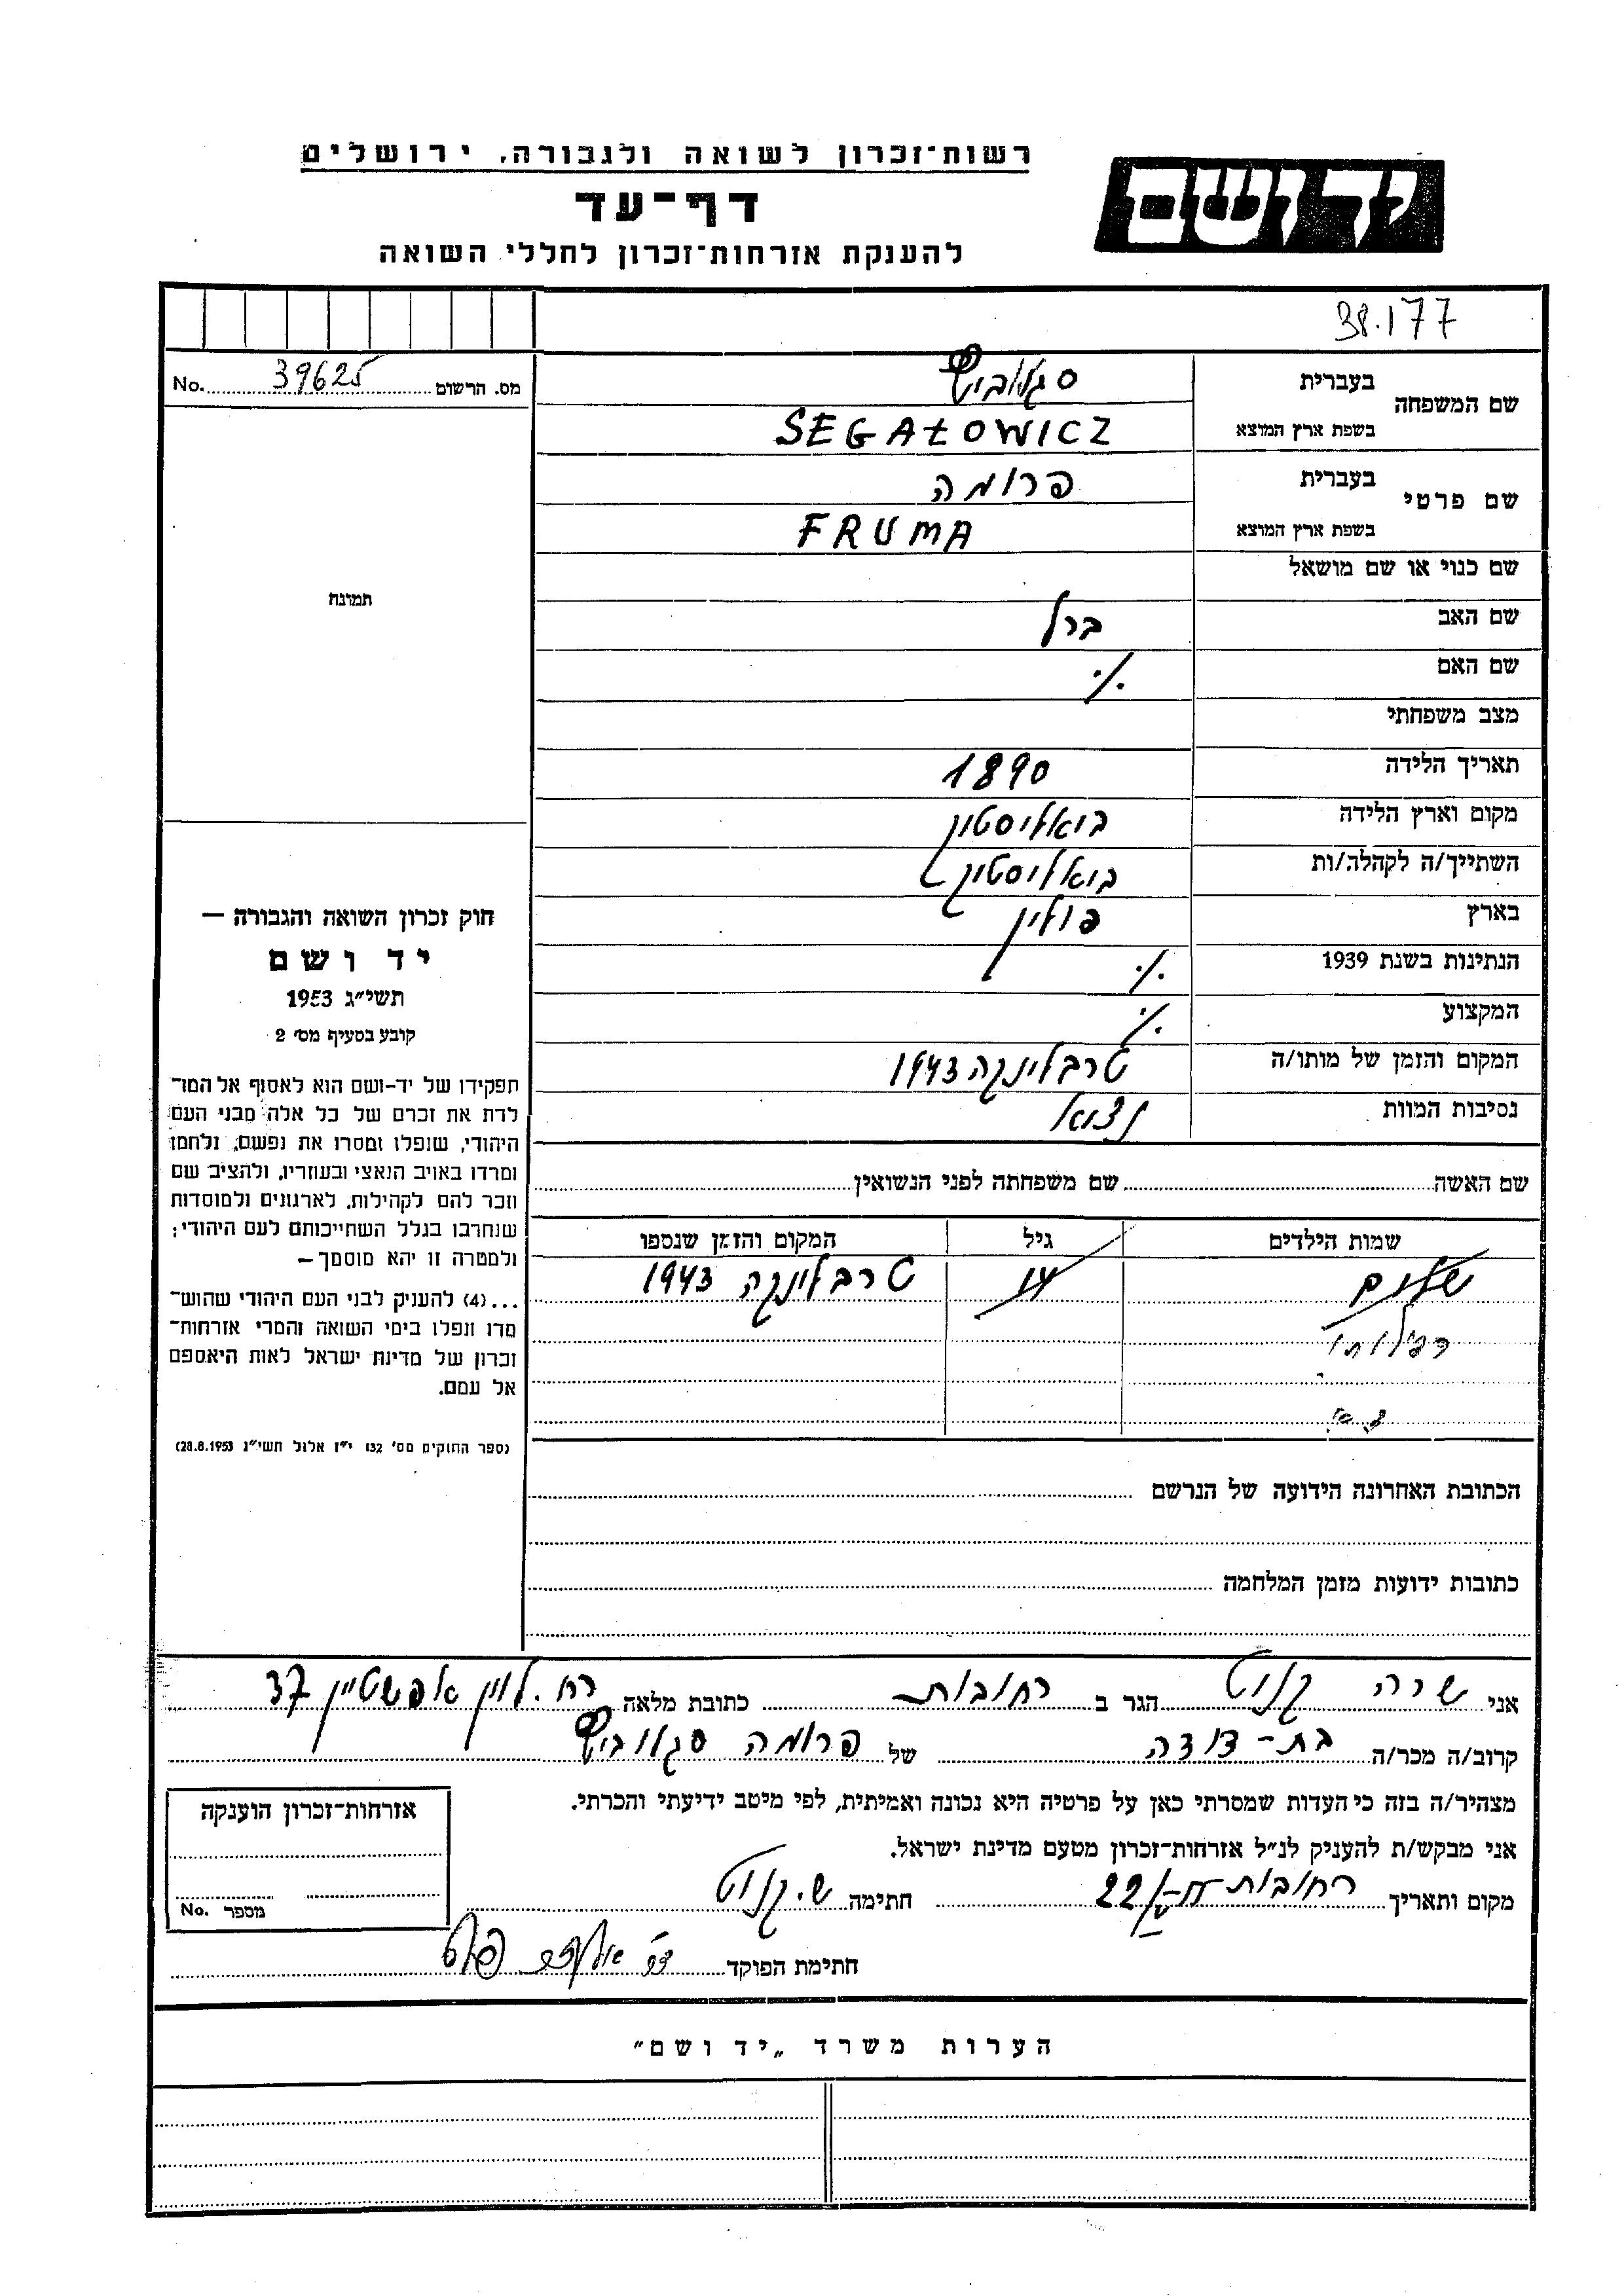 רשות־זכרון לשואה ולגבורה, ירושלים
יד ושם
דף־עד
להענקת אזרחות־זכרון לחללי השואה
38.177
מס. הרשום 39625 No.
שם המשפחה
בעברית סגלוביץ
בשפת ארץ המוצא SEGAŁOWICZ
שם פרטי
בעברית פרומה
בשפת ארץ המוצא FRUMA
שם כנוי או שם מושאל
שם האב ברל
שם האם ./.
מצב משפחתי
תאריך הלידה 1890
מקום וארץ הלידה ביאליסטוק
השתייך/ה לקהלה/ות ביאליסטוק
בארץ פולין
הנתינות בשנת 1939 ./.
המקצוע ./.
המקום והזמן של מותו/ה טרבלינקה 1943
נסיבות המוות
תמונה
חוק זכרון השואה והגבורה —
יד ושם
תשי״ג 1953
קובע בסעיף מס׳ 2
תפקידו של יד-ושם הוא לאסוף אל המו־
לדת את זכרם של כל אלה מבני העם
היהודי, שנפלו ומסרו את נפשם, נלחמו
ומרדו באויב הנאצי ובעוזריו, ולהציב שם
וזכר להם לקהילות, לארגונים ולמוסדות
שנחרבו בגלל השתייכותם לעם היהודי;
ולמטרה זו יהא מוסמך —
...(4) להעניק לבני העם היהודי שהוש־
מדו ונפלו בימי השואה והמרי אזרחות־
זכרון של מדינת ישראל לאות היאספם
אל עמם.
(ספר החוקים מס׳ 132 י״ז אלול תשי״ג 28.8.1953)
שם האשה שם משפחתה לפני הנשואין
שמות הילדים גיל המקום והזמן שנספו
שלום טרבלינקה 1943
הכתובת האחרונה הידועה של הנרשם
כתובות ידועות מזמן המלחמה
אני שרה הגר ב רחובות כתובת מלאה רח. לוין אפשטיין 37
קרוב/ה מכר/ה בת-דודה של פרומה סגלוביץ
מצהיר/ה בזה כי העדות שמסרתי כאן על פרטיה היא נכונה ואמיתית, לפי מיטב ידיעתי והכרתי.
אני מבקש/ת להעניק לנ״ל אזרחות־זכרון מטעם מדינת ישראל.
מקום ותאריך רחובות חתימה
חתימת הפוקד
אזרחות־זכרון הוענקה
מספר No.
הערות משרד „יד ושם״